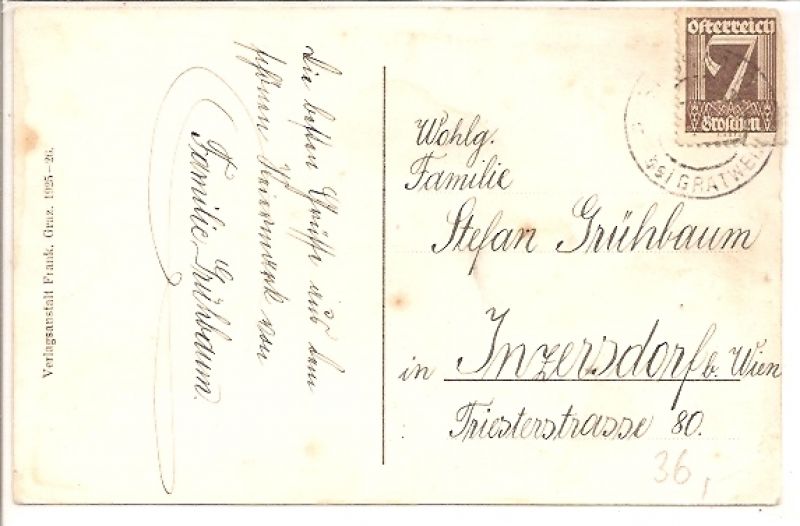 Die besten Grüße aus dem
schönen von
Familie Grühbaum.
Wohlg.
Familie
Stefan Grühbaum
in Inzersdorf b. Wien
Triesterstrasse 80.
36,-
Österreich
7
Groschen
GRATWEIN
Verlagsanstalt Frank, Graz. 1925–26.